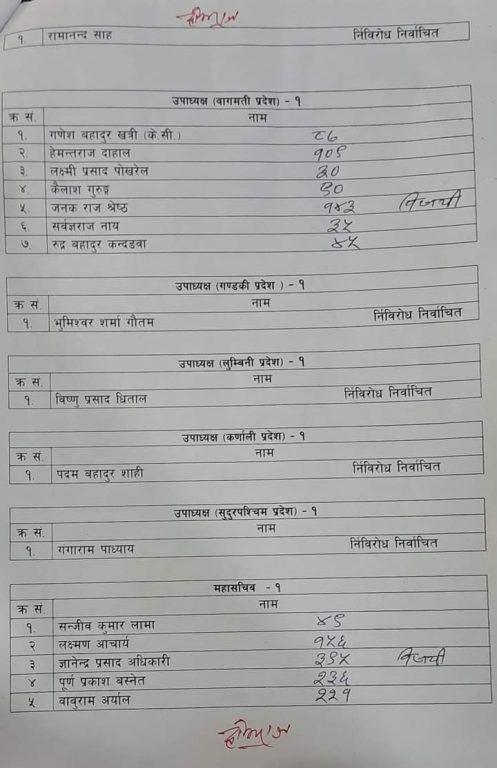 १ रामानन्द साह निर्विरोध निर्वाचित
उपाध्यक्ष (वागमती प्रदेश) - १
क्र सं. नाम
१. गणेश बहादुर खत्री (के.सी.) ८७
२. हेमन्तराज दाहाल १०९
३. लक्ष्मी प्रसाद पोखरेल ३०
४. कैलाश गुरुङ्ग ९०
५. जनक राज श्रेष्ठ १४३ विजयी
६ सर्वज्ञराज नाय ३५
७. रुद्र बहादुर कन्दडवा ४५
उपाध्यक्ष (गण्डकी प्रदेश ) - १
क्र सं. नाम
१. भुमिश्वर शर्मा गौतम निर्विरोध निर्वाचित
उपाध्यक्ष (लुम्बिनी प्रदेश) - १
क्र सं. नाम
१. विष्णु प्रसाद धिताल निर्विरोध निर्वाचित
उपाध्यक्ष (कर्णाली प्रदेश) - १
क्र सं. नाम
१. पदम बहादुर शाही निर्विरोध निर्वाचित
उपाध्यक्ष (सुदुरपश्चिम प्रदेश) - १
क्र सं. नाम
१. गंगाराम पाध्याय निर्विरोध निर्वाचित
महासचिव - १
क्र सं. नाम
१. सन्जीव कुमार लामा ४९
२ लक्ष्मण आचार्य १५६
३ ज्ञानेन्द्र प्रसाद अधिकारी ३९५ विजयी
४ पूर्ण प्रकाश बस्नेत २३६
५ वावुराम अर्याल २२१